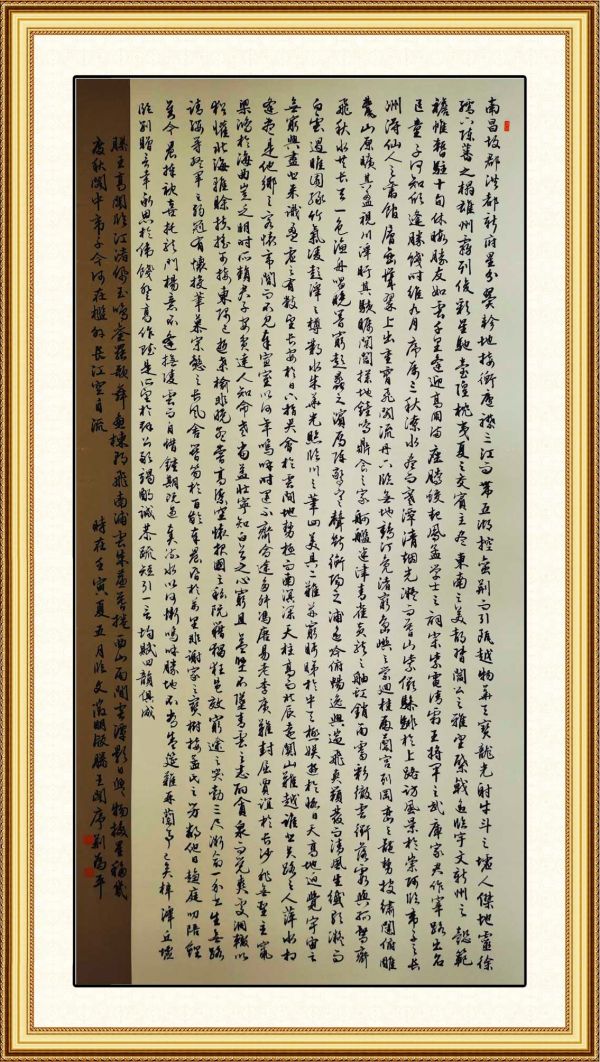 南昌故郡洪都新府星分翼軫地接衡廬襟三江而帶五湖控蠻荊而引甌越物華天寶龍光射牛斗之墟人傑地靈徐
孺下陳蕃之榻雄州霧列俊彩星馳臺隍枕夷夏之交賓主盡東南之美都督閻公之雅望棨戟遙臨宇文新州之懿範
襜帷暫駐十旬休暇勝友如雲千里逢迎高朋滿座騰蛟起鳳孟學士之詞宗紫電清霜王將軍之武庫家君作宰路出名
區童子何知躬逢勝餞時維九月序屬三秋潦水盡而寒潭清烟光凝而暮山紫儼驂騑於上路訪風景於崇阿臨帝子之長
洲得仙人之舊館層巒聳翠上出重霄飛閣流丹下臨無地鶴汀鳧渚窮島嶼之縈迴桂殿蘭宮列岡巒之體勢披繡闥俯雕
甍山原曠其盈視川澤盱其駭矚閭閻撲地鐘鳴鼎食之家舸艦迷津青雀黃龍之舳虹銷雨霽彩徹雲衢落霞與孤鶩齊
飛秋水共長天一色漁舟唱晚響窮彭蠡之濱雁陣驚寒聲斷衡陽之浦遙吟俯暢逸興遄飛爽籟發而清風生纖歌凝而
白雲遏睢園綠竹氣凌彭澤之樽鄴水朱華光照臨川之筆四美具二難並窮睇眄於中天極娛遊於暇日天高地迥覺宇宙之
無窮興盡悲來識盈虛之有數望長安於日下指吳會於雲間地勢極而南溟深天柱高而北辰遠關山難越誰悲失路之人萍水相
逢盡是他鄉之客懷帝閽而不見奉宣室以何年嗚呼時運不齊命途多舛馮唐易老李廣難封屈賈誼於長沙非無聖主竄
梁鴻於海曲豈乏明時所賴君子安貧達人知命老當益壯寧知白首之心窮且益堅不墜青雲之志酌貪泉而覺爽處涸轍以
猶懽北海雖賒扶搖可接東隅已逝桑榆非晚孟嘗高潔空懷報國之心阮籍猖狂豈效窮途之哭勃三尺微命一介書生無路
請纓等終軍之弱冠有懷投筆慕宗慤之長風舍簪笏於百齡奉晨昏於萬里非謝家之寶樹接孟氏之芳鄰他日趨庭叨陪鯉
對今晨捧袂喜托龍門楊意不逢撫凌雲而自惜鍾期既遇奏流水以何慚嗚呼勝地不常盛筵難再蘭亭已矣梓澤丘墟
臨別贈言幸承恩於偉餞登高作賦是所望於群公敢竭鄙誠恭疏短引一言均賦四韻俱成
滕王高閣臨江渚佩玉鳴鸞罷歌舞畫棟朝飛南浦雲朱簾暮捲西山雨閒雲潭影日悠悠物換星移幾
度秋閣中帝子今何在檻外長江空自流 時在壬寅夏五月臨文徵明版滕王閣序劉為平